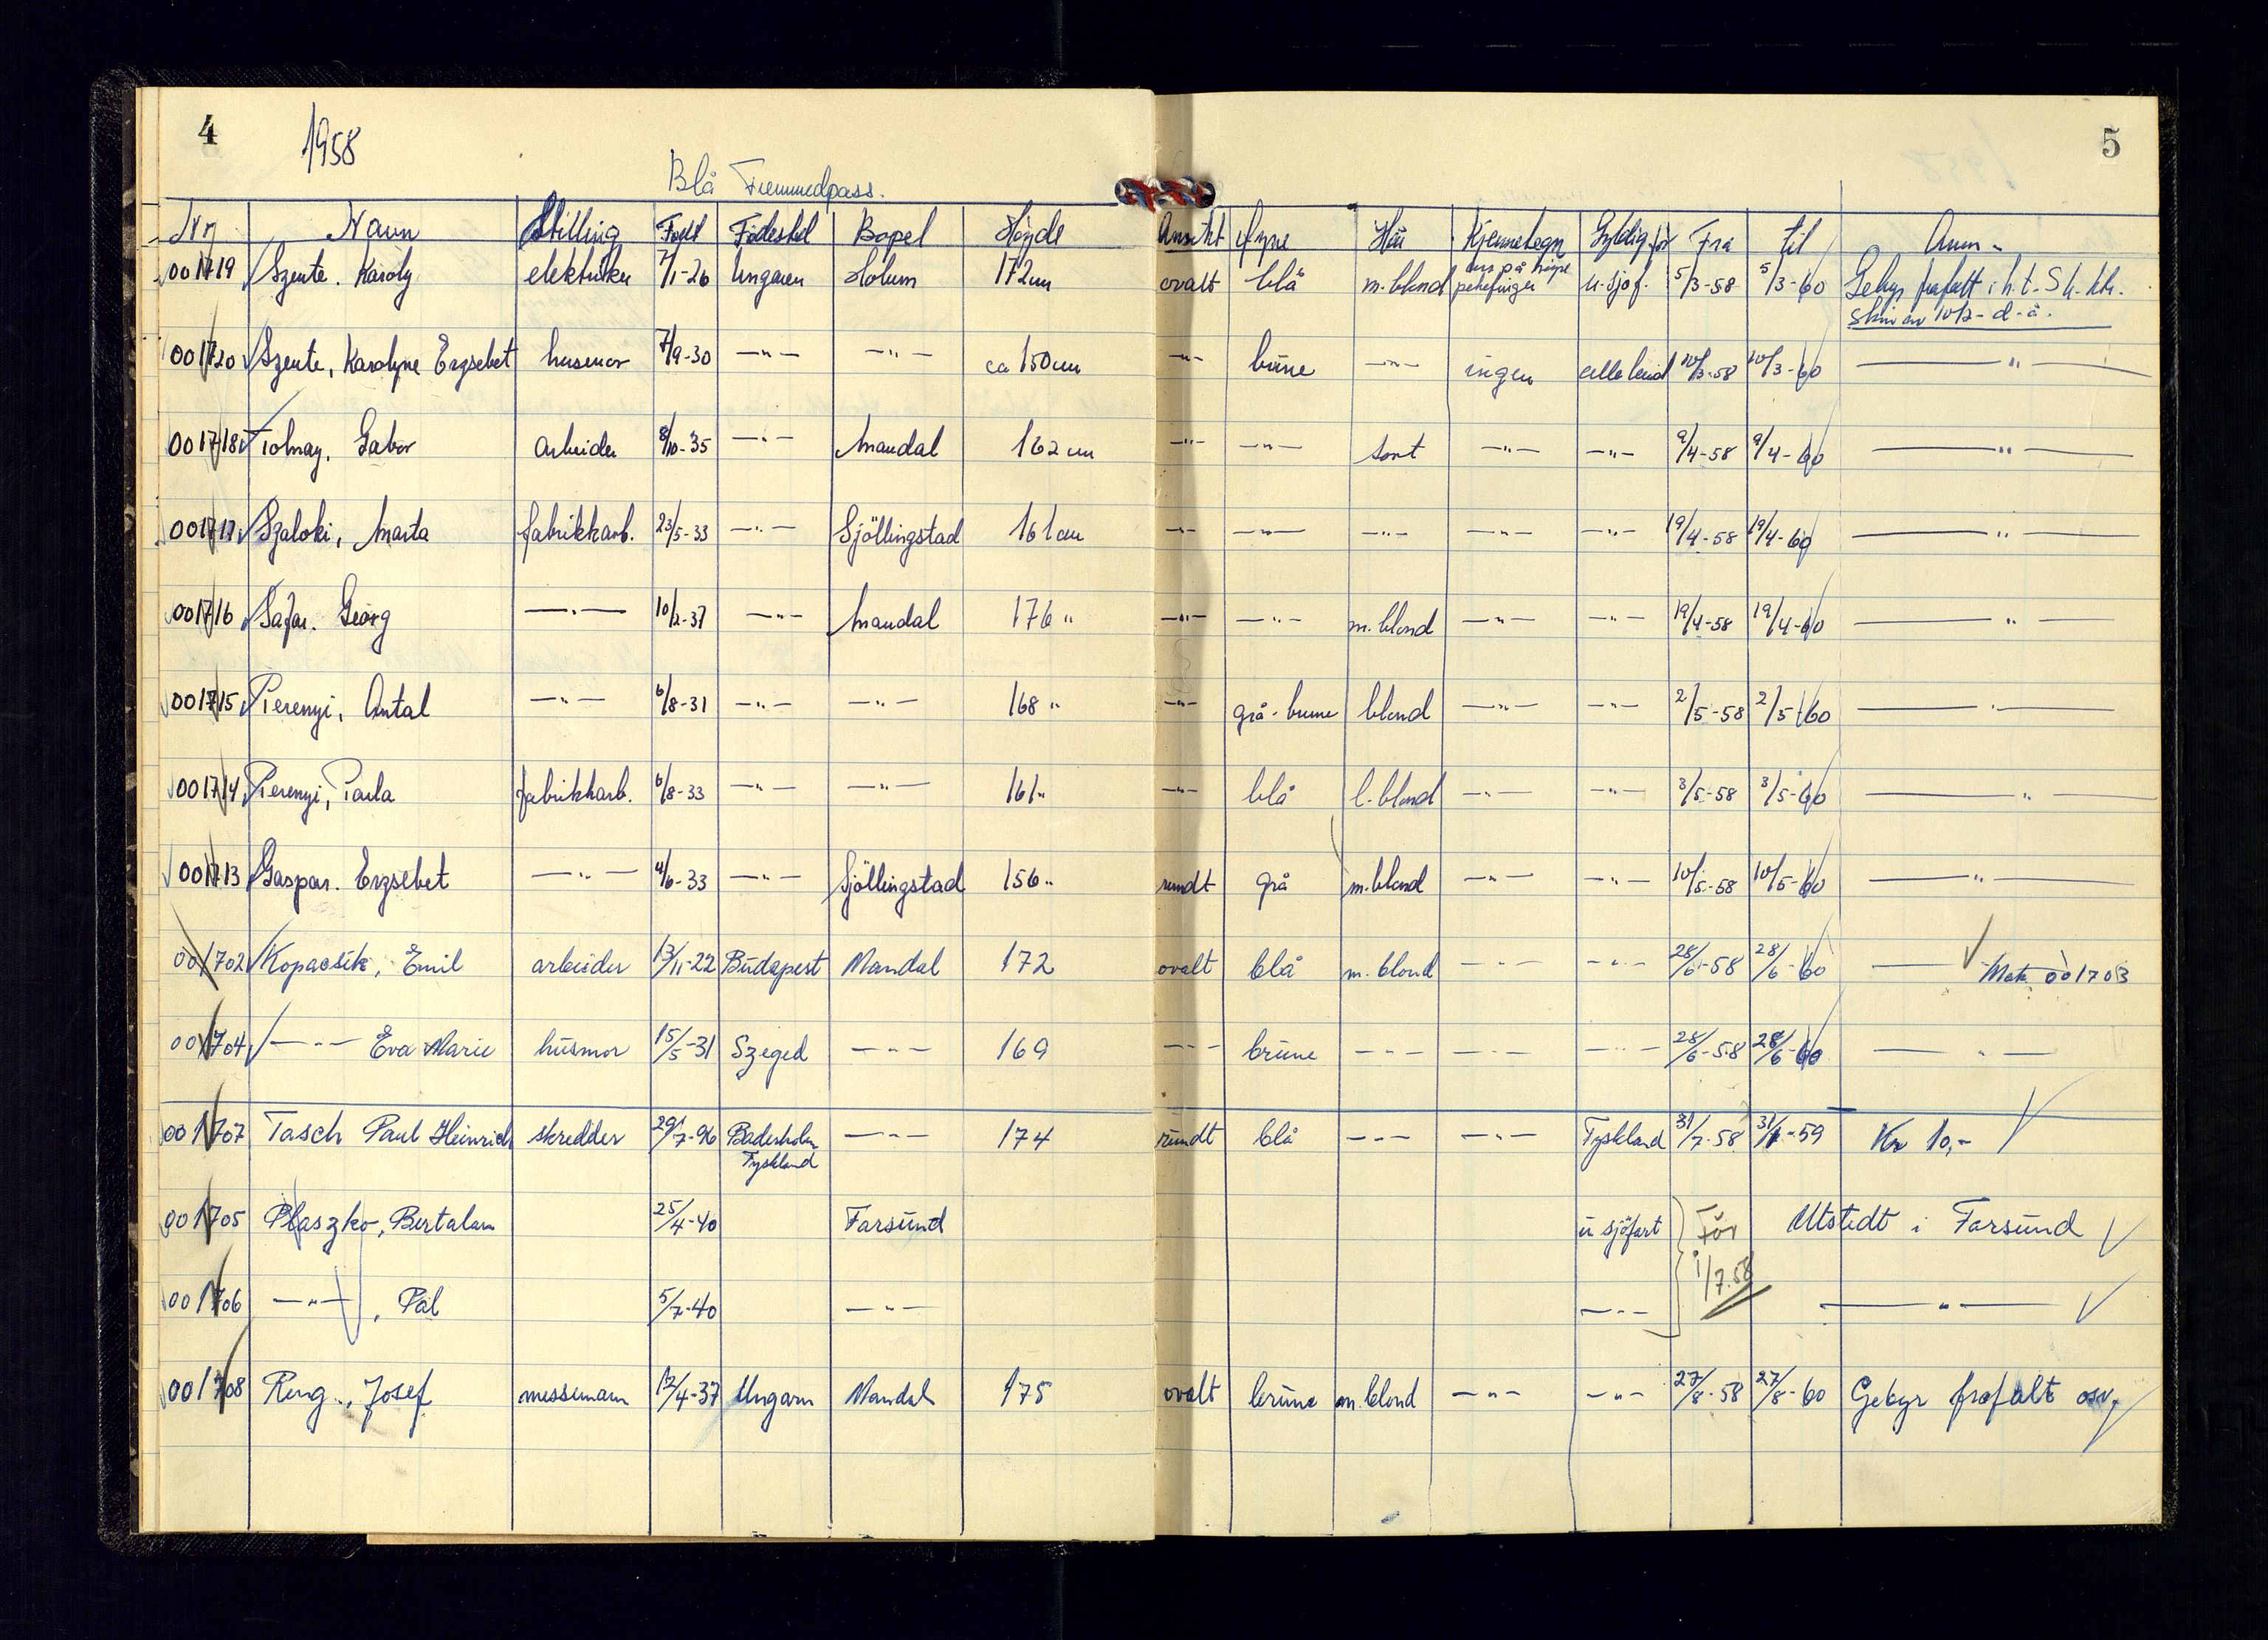 4 1958 5
Blå Fremmedpass.
Nr Navn Stilling Født Fødested Bopel Høyde Ansikt Øyne Hår Kjennetegn Gyldig for Fra til Anm.
001719 Szente. Karoly elektriker 7/1-26 Ungaren Holum 172 cm ovalt blå m.blond arr på høyre pekefinger u. sjøf. 5/3-58 5/3-60 Gebyr frafalt i h.t. S.k. skriv av 10/2- d.å.
001720 Szente, Karolyne Erzsebet husmor 7/9-30 —"— —"— ca 150 cm —"— brune —"— ingen alle land 10/3-58 10/3-60 —"—
001718 Tolnay, Gabor Arbeider 8/10-35 —"— Mandal 162 cm —"— —"— sort —"— —"— 9/4-58 9/4-60 —"—
001717 Szaloki, Marta fabrikkarb. 23/5-33 —"— Sjöllingstad 161 cm —"— —"— —"— —"— —"— 19/4-58 19/4-60 —"—
001716 Safar. Georg —"— 10/2-37 —"— Mandal 176 " —"— —"— m.blond —"— —"— 19/4-58 19/4-60 —"—
001715 Perenyi, Antal —"— 6/8-31 —"— —"— 168 " —"— grå-brune blond —"— —"— 2/5-58 2/5-60 —"—
001714 Perenyi, Paula fabrikkarb. 6/8-33 —"— —"— 161 " —"— blå l.blond —"— —"— 3/5-58 3/5-60 —"—
001713 Gaspar. Erzsebet —"— 4/6-33 —"— Sjöllingstad 156 " rundt grå m.blond —"— —"— 10/5-58 10/5-60 —"—
001702 Kopacsik, Emil arbeider 13/11-22 Budapest Mandal 172 ovalt blå m.blond —"— —"— 28/6-58 28/6-60 — Mak. 001703
001704 —"— Eva Marie husmor 15/5-31 Szeged —"— 169 —"— brune —"— —"— —"— 28/6-58 28/6-60 —"—
001707 Tasch Paul Heinrich skredder 29/7-96 Baderholm —"— 174 rundt blå —"— —"— Tyskland 31/7-58 31/1-59 Kr 10,-
Tyskland
001705 Plaszko, Bertalan 25/4-40 Farsund u sjøfart Før 1/7.58 Utstedt i Farsund
001706 —"—, Pal 5/7-40 —"— —"— —"—
001708 Ring., Josef messemann 12/4-37 Ungarn Mandal 175 ovalt brune m.blond —"— —"— 27/8-58 27/8-60 Gebyr frafalt osv.